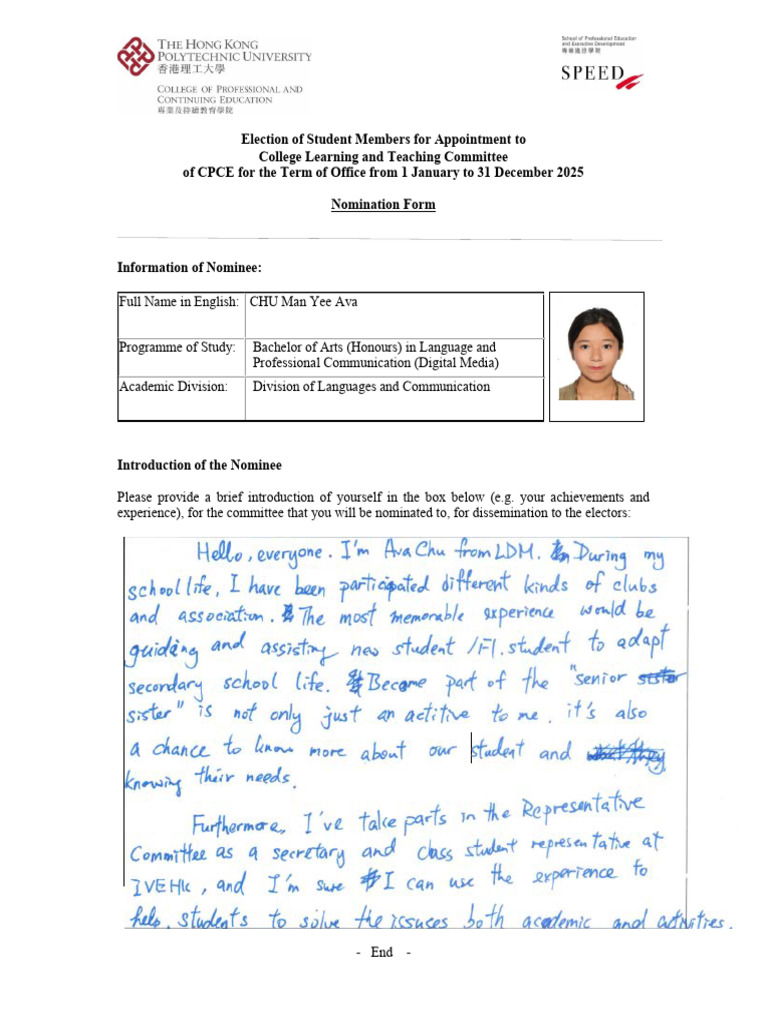 THE HONG KONG
POLYTECHNIC UNIVERSITY
香港理工大學
COLLEGE OF PROFESSIONAL AND
CONTINUING EDUCATION
專業及持續教育學院
School of Professional Education
and Executive Development
專業進修學院
SPEED
Election of Student Members for Appointment to
College Learning and Teaching Committee
of CPCE for the Term of Office from 1 January to 31 December 2025
Nomination Form
Information of Nominee:
Full Name in English: CHU Man Yee Ava
Programme of Study: Bachelor of Arts (Honours) in Language and
Professional Communication (Digital Media)
Academic Division: Division of Languages and Communication
Introduction of the Nominee
Please provide a brief introduction of yourself in the box below (e.g. your achievements and
experience), for the committee that you will be nominated to, for dissemination to the electors:
Hello, everyone. I'm Ava Chu from LDM. During my
school life, I have been participated different kinds of clubs
and association. The most memorable experience would be
guiding and assisting new student /F1. student to adapt
secordary school life. Become part of the "senior
sister" is not only just an actitive to me. it's also
a chance to know more about our student and
knowing their needs.
Furthermore, I've take parts in the Representative
Committee as a secretary and class student representative at
IVEHK, and I'm sure I can use the experience to
help. students to solve the issuces both academic and activities.
- End -